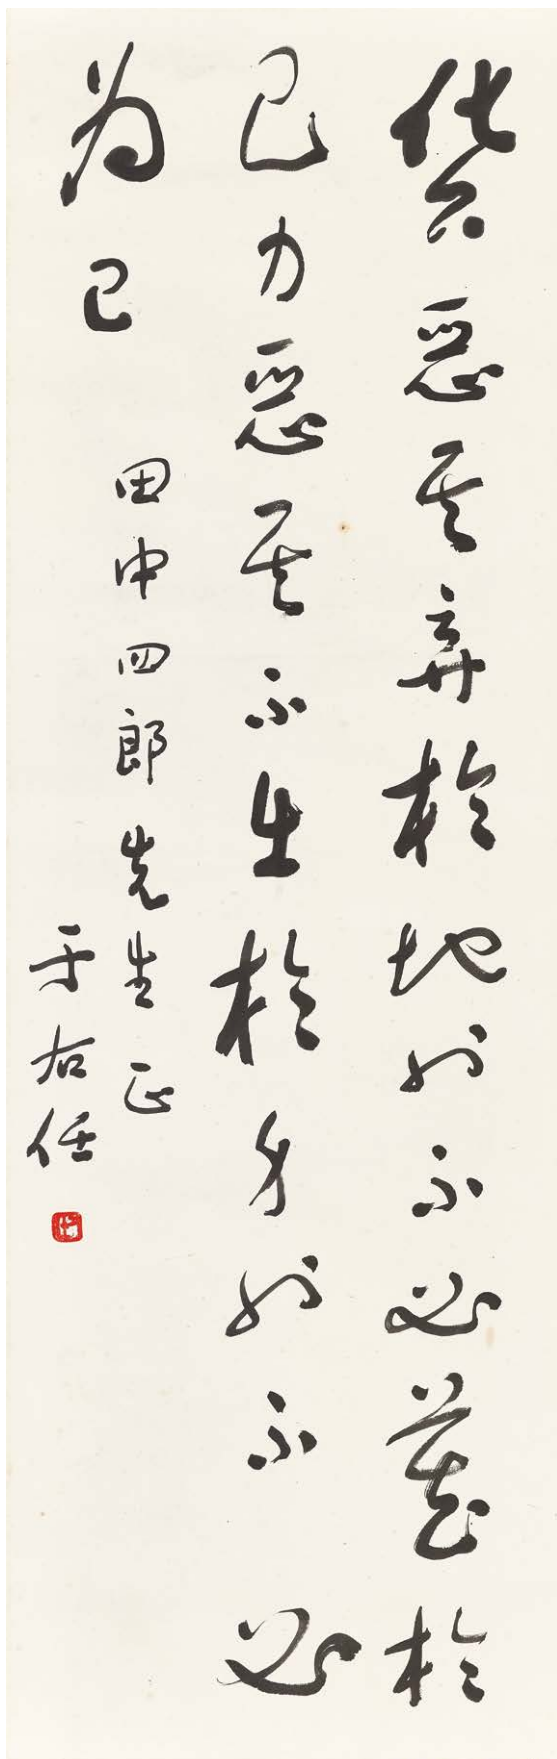 貨惡其弃於地也不必藏於
己力惡其不出於身也不必
為己
田中四郎先生正
于右任